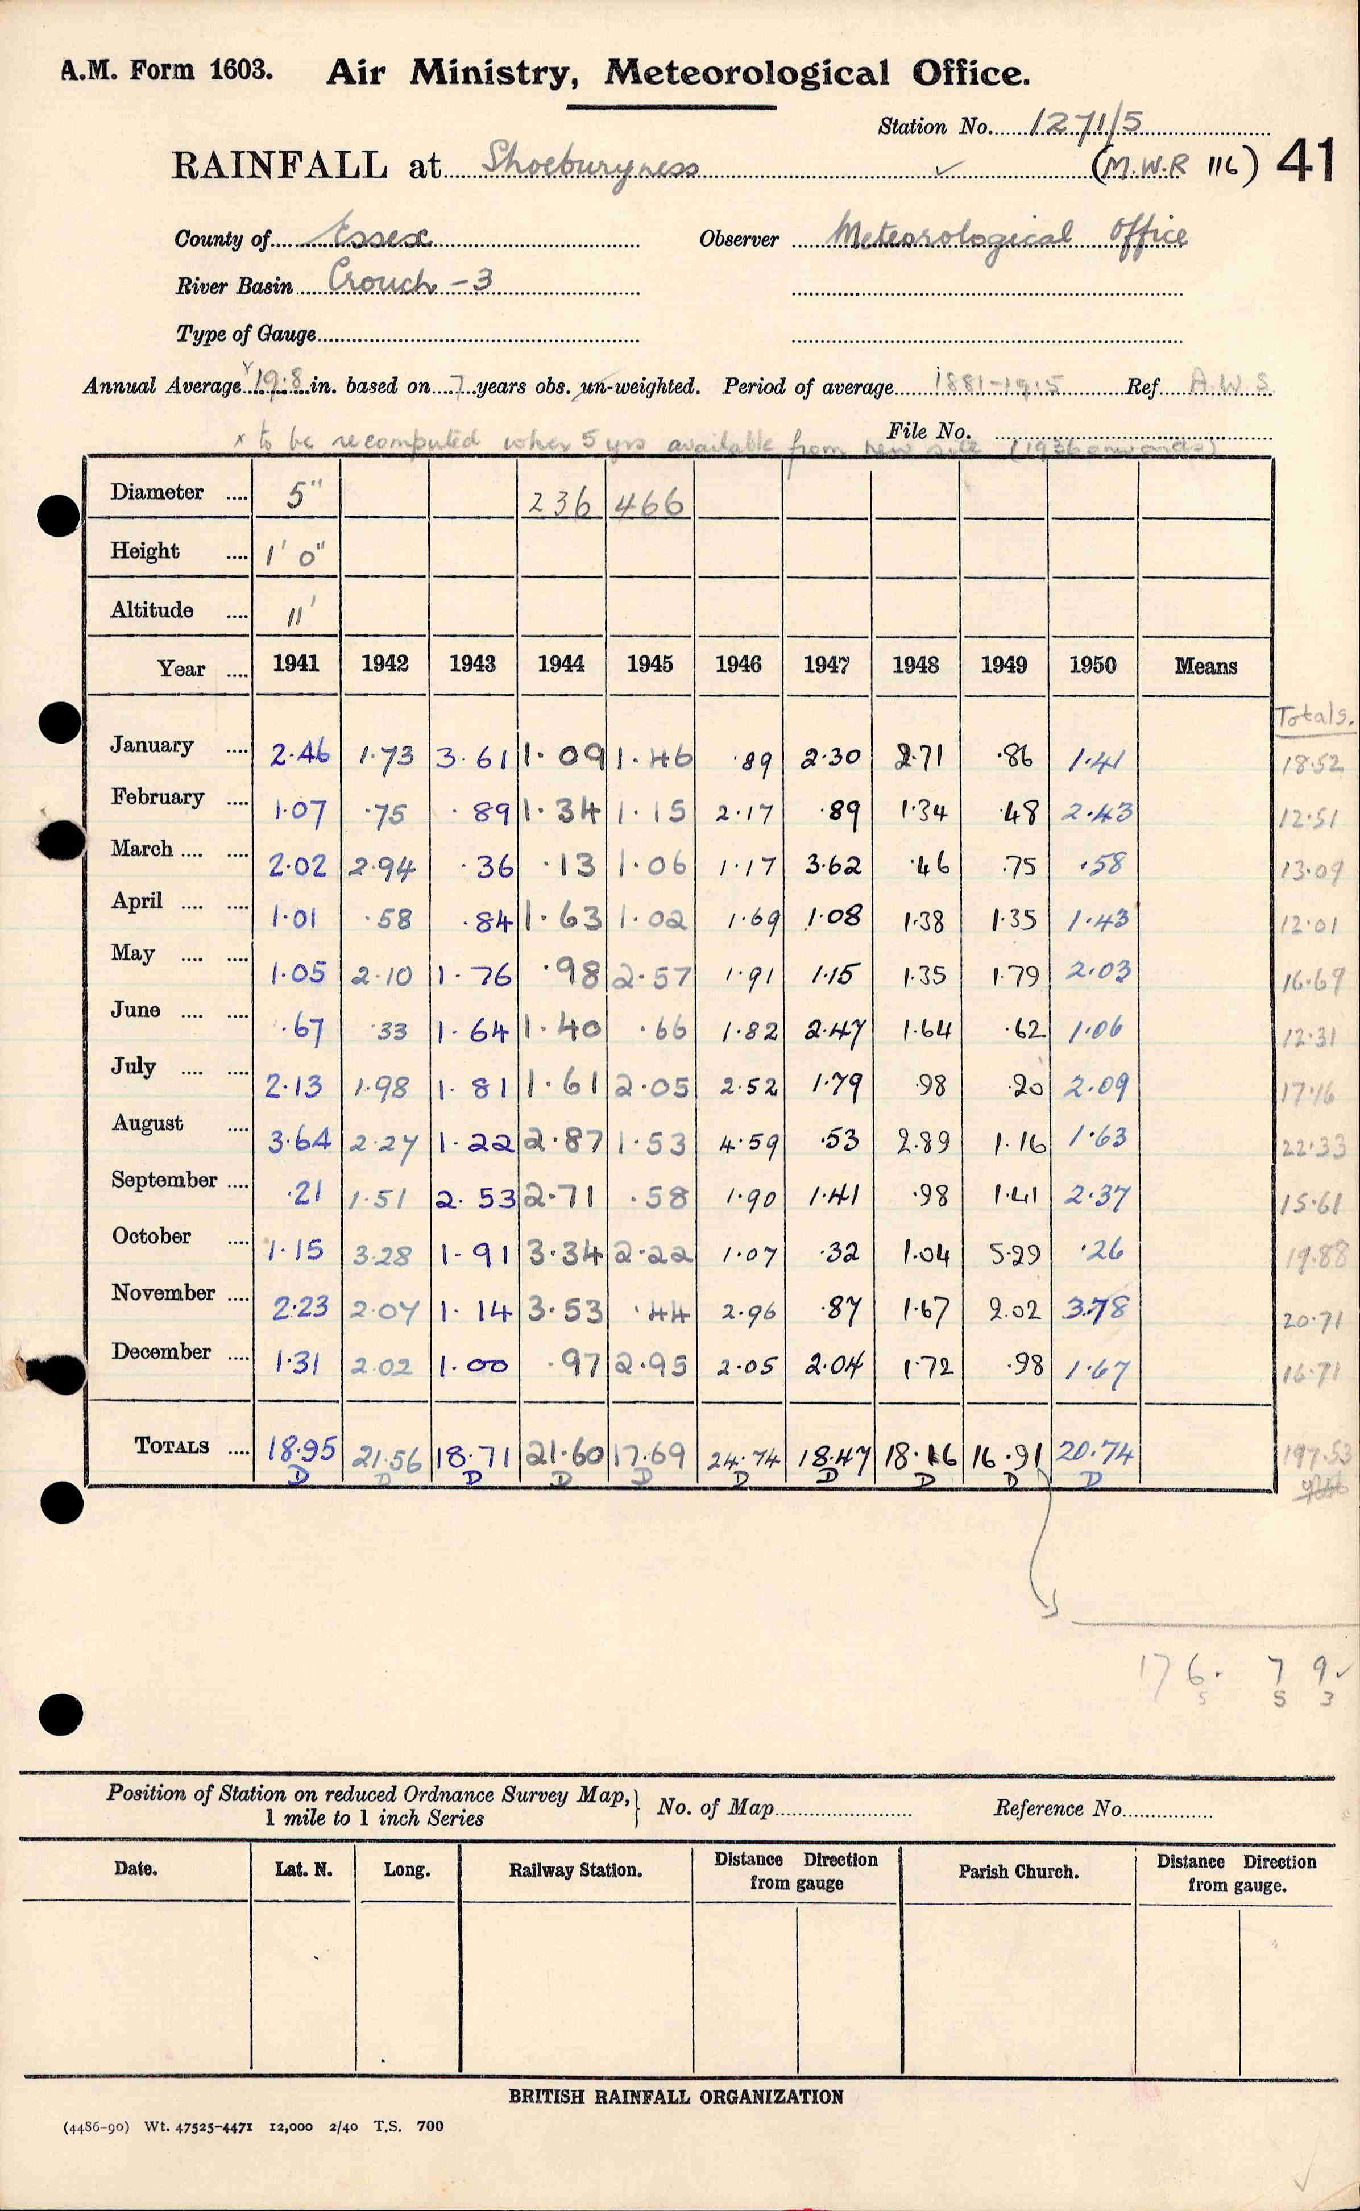 A.M. Form 1603. Air Ministry, Meteorological Office.
Station No. 1271/5
RAINFALL at Shoeburyness ✓ (M.W.R 116) 41
County of Essex Observer Meteorological Office
River Basin Crouch - 3
Type of Gauge
Annual Average x 19.8 in. based on 7 years obs. un-weighted. Period of average 1881-1915 Ref A.W.S.
File No.
x to be recomputed when 5 yrs available from new site (1936 onwards)
Diameter .... 5" 236 466
Height .... 1' 0"
Altitude .... 11'
Year .... 1941 1942 1943 1944 1945 1946 1947 1948 1949 1950 Means
Totals.
January .... 2.46 1.73 3.61 1.09 1.46 .89 2.30 2.71 .86 1.41 18.52
February .... 1.07 .75 .89 1.34 1.15 2.17 .89 1.34 .48 2.43 12.51
March .... .... 2.02 2.94 .36 .13 1.06 1.17 3.62 .46 .75 .58 13.09
April .... .... 1.01 .58 .84 1.63 1.02 1.69 1.08 1.38 1.35 1.43 12.01
May .... .... 1.05 2.10 1.76 .98 2.57 1.91 1.15 1.35 1.79 2.03 16.69
June .... .... .67 .33 1.64 1.40 .66 1.82 2.47 1.64 .62 1.06 12.31
July .... .... 2.13 1.98 1.81 1.61 2.05 2.52 1.79 .98 .20 2.09 17.16
August .... 3.64 2.27 1.22 2.87 1.53 4.59 .53 2.89 1.16 1.63 22.33
September .... .21 1.51 2.53 2.71 .58 1.90 1.41 .98 1.41 2.37 15.61
October .... 1.15 3.28 1.91 3.34 2.22 1.07 .32 1.04 5.29 .26 19.88
November .... 2.23 2.07 1.14 3.53 .44 2.96 .87 1.67 2.02 3.78 20.71
December .... 1.31 2.02 1.00 .97 2.95 2.05 2.04 1.72 .98 1.67 16.71
TOTALS .... 18.95 21.56 18.71 21.60 17.69 24.74 18.47 18.16 16.91 20.74 197.53
D D D D D D D D D D
176. 7 9 ✓
5 5 3
Position of Station on reduced Ordnance Survey Map, 1 mile to 1 inch Series } No. of Map Reference No.
Date. Lat. N. Long. Railway Station. Distance Direction from gauge Parish Church. Distance Direction from gauge.
BRITISH RAINFALL ORGANIZATION
(4486-90) Wt. 47525-4471 12,000 2/40 T.S. 700